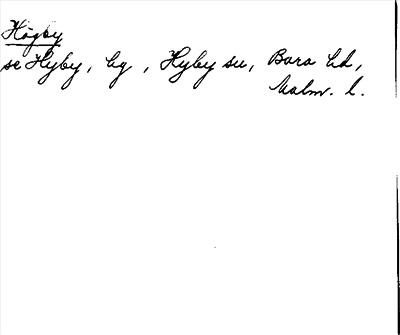 Högby
se Hyby, by, Hyby sn, Bara hd,
Malm. l.